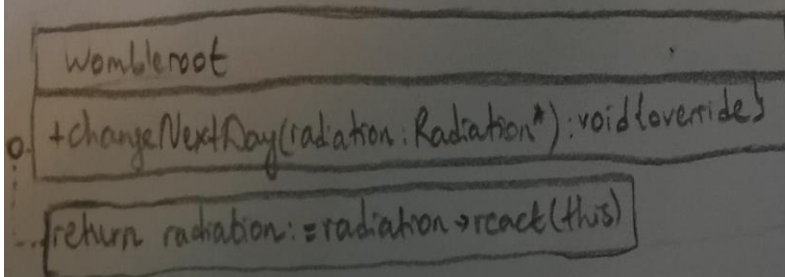 wombleroot
+changeNextDay(radiation: Radiation*): void {override}
return radiation:=radiation→react(this)